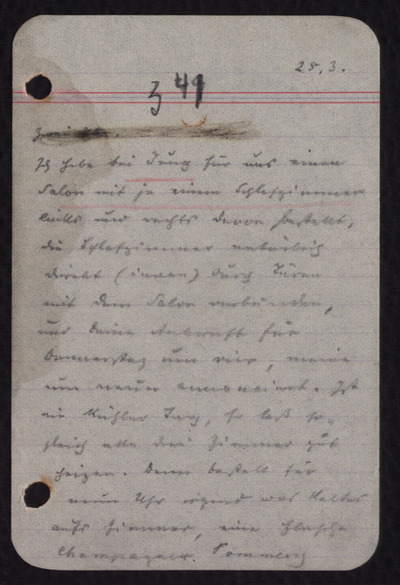 25.3.
349
Ich habe bei Jung für uns einen
Salon mit je einem Schlafzimmer
links und rechts davon bestellt,
die Schlafzimmer natürlich
direkt (innen) durch Türen
mit dem Salon verbunden,
und deine Ankunft für
Donnerstag um vier, meine
um neun annonciert. Ist
ein kühler Tag, so laß so-
gleich alle drei Zimmer gut
heizen. Dann bestell für
neun Uhr irgend was Kaltes
aufs Zimmer, eine Flasche
Champagner. Pommery